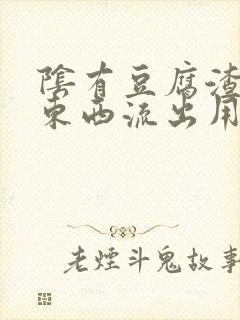 陰有豆腐渣
東西流出用
老煙斗鬼故事